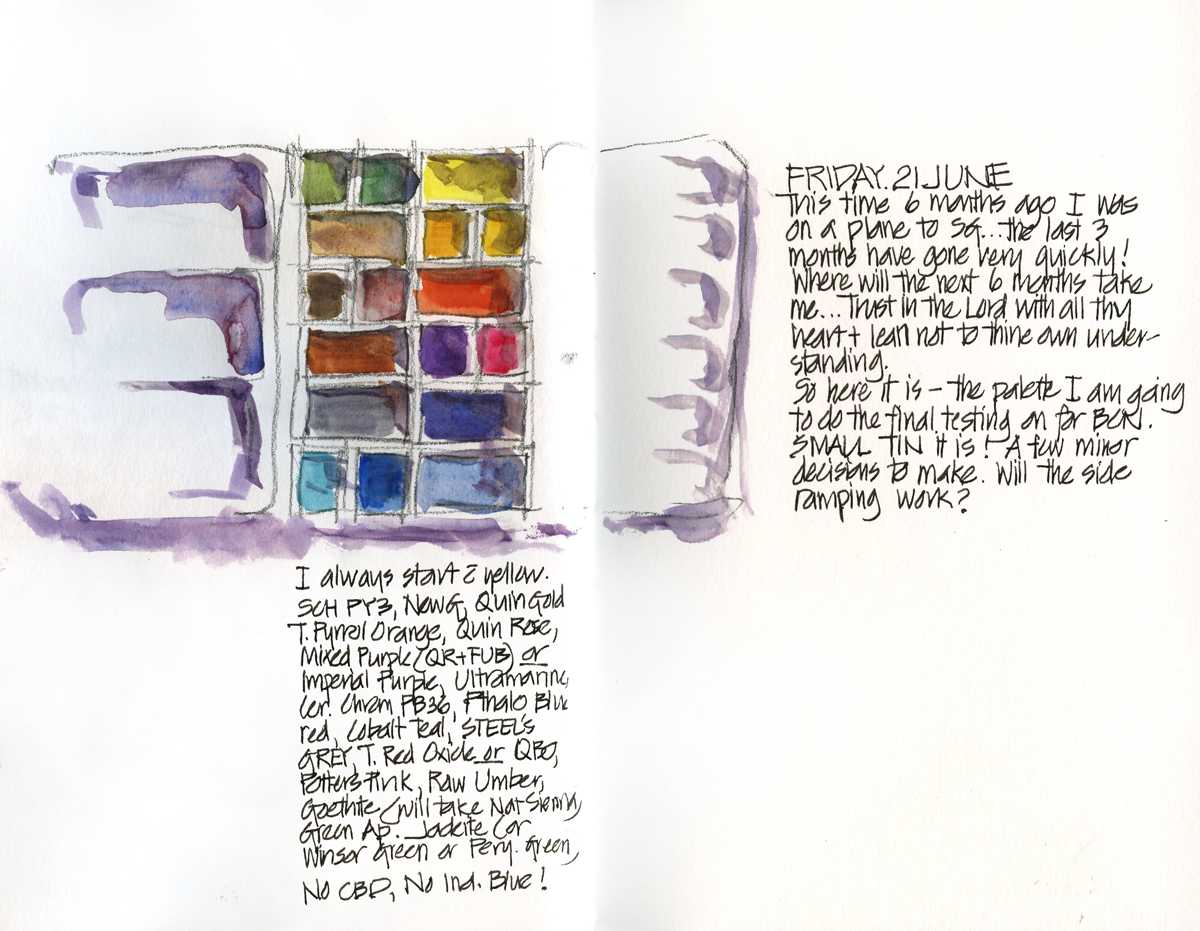 I always start c̄ yellow.
SCH PY3, New G, Quin Gold
T. Pyrrol Orange, Quin Rose,
Mixed Purple (QR+FUB) or
Imperial Purple, Ultramarine,
Cer. Chrom PB36, Pthalo Blue
red, Cobalt Teal, STEEL'S
GREY, T. Red Oxide or QBO,
Potters Pink, Raw Umber,
Goethite (will take Nat Sienna,
Green Ap. Jadeite (or
Winsor Green or Pery. Green,
No CBD, No Ind. Blue!
FRIDAY. 21 JUNE
This time 6 months ago I was
on a plane to SG... the last 3
months have gone very quickly!
Where will the next 6 months take
me... Trust in the Lord with all thy
heart + lean not to thine own under-
standing.
So here it is – the palette I am going
to do the final testing on for BCN.
SMALL TIN it is! A few minor
decisions to make. Will the side
ramping work?